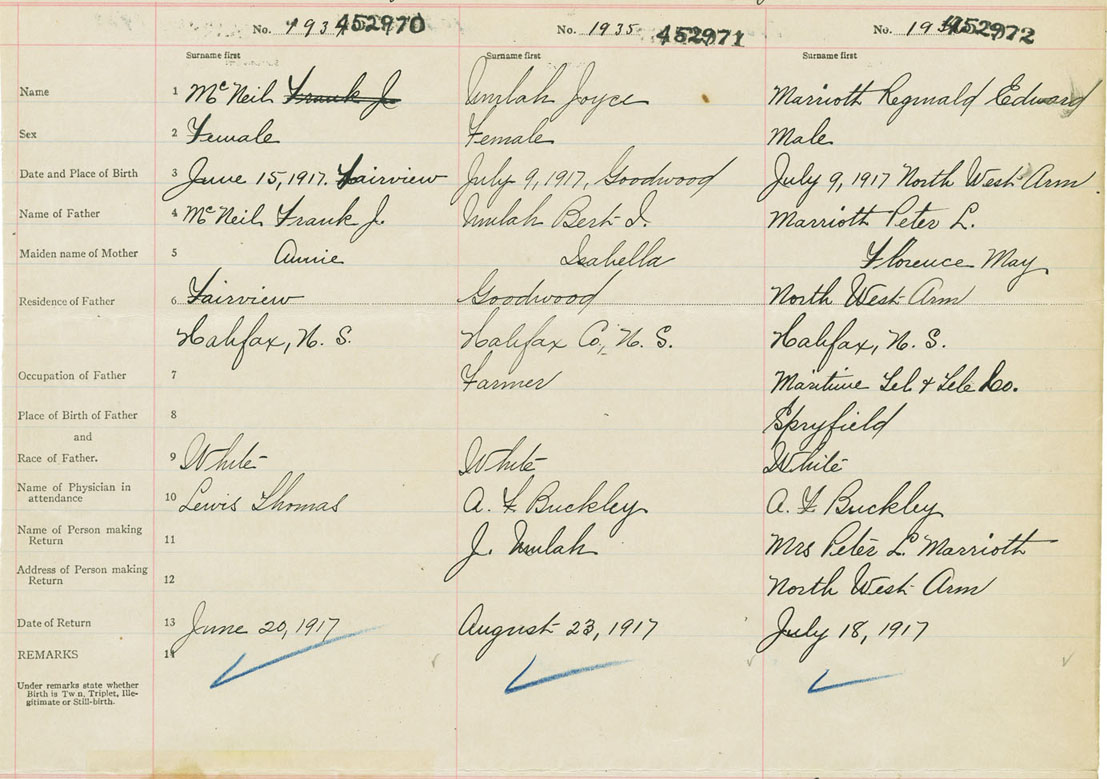 No. 1934 452970 No. 1935 452971 No. 452972
Surname first Surname first Surname first
Name 1 McNeil Frank J Umlah Joyce Marrioth Reginald Edward
Sex 2 Female Female Male
Date and Place of Birth 3 June 15, 1917. Fairview July 9, 1917, Goodwood July 9, 1917 North West Arm.
Name of Father 4 McNeil Frank J. Umlah Bert I. Marrioth Peter L.
Maiden name of Mother 5 Annie Isabella Florence May
Residence of Father 6 Fairview Goodwood North West Arm
Halifax, N. S. Halifax Co., N. S. Halifax, N. S.
Occupation of Father 7 Farmer Maritime Tel & Tele Co.
Place of Birth of Father 8 Spryfield
and
Race of Father. 9 White White White
Name of Physician in
attendance 10 Lewis Thomas A. F Buckley A. F Buckley
Name of Person making
Return 11 J. Umlah Mrs Peter L. Marrioth
Address of Person making
Return 12 North West Arm
Date of Return 13 June 20, 1917 August 23, 1917 July 18, 1917
REMARKS 14
Under remarks state whether
Birth is Twin, Triplet, Ille-
gitimate or Still-birth.